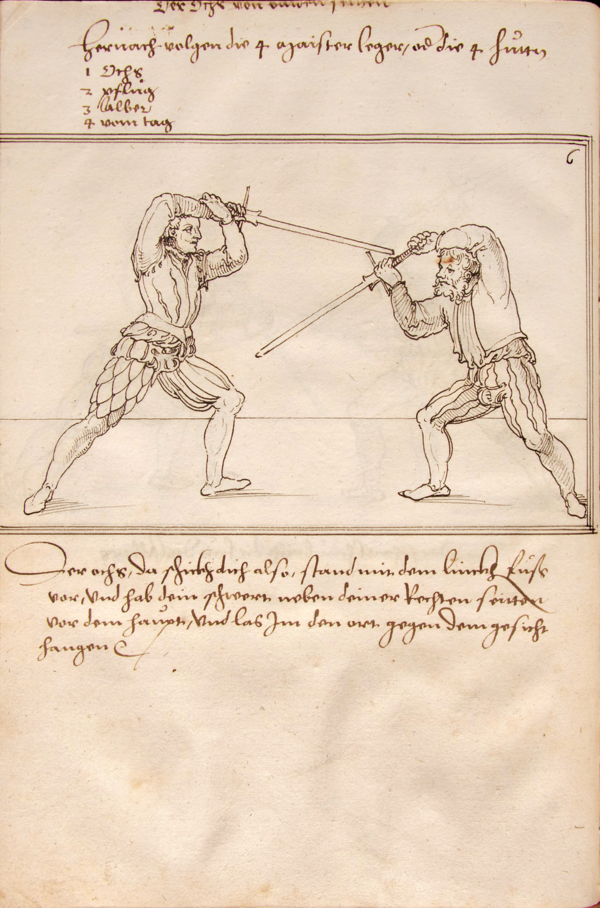 Der Ochs von baiden seitten
Hernach volgen die 4 Maister leger, od die 4 hut̃n
1 Ochs
2 pflug
3 Alber
4 vom tag
6
Der ochs, da schickh dich also, stand mit dem linckh fuͦss
vor, Vnd hab dein schwert neben deiner Rechten seitten
vor dem haupt, Vnd las Im den ort gegen dem gesicht
hangen